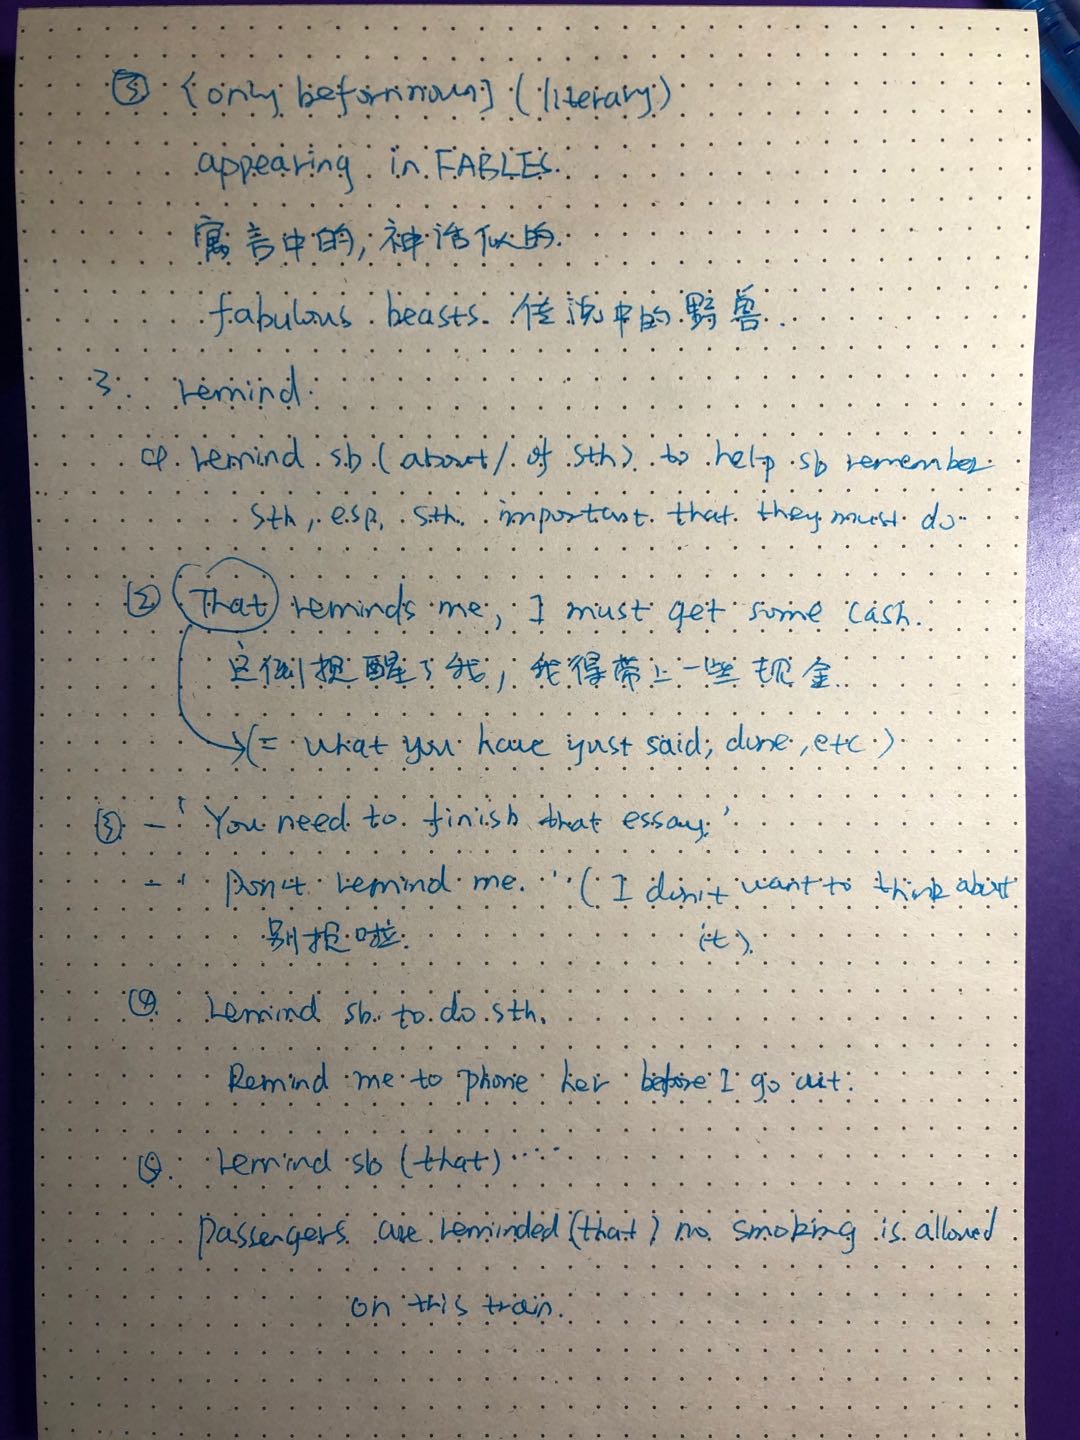 ③ [only before noun] (literary)
appearing in FABLES.
寓言中的, 神话似的.
fabulous beasts. 传说中的野兽.
3. remind.
① remind sb (about / of sth) to help sb remember
sth, esp. sth important that they must do.
② That reminds me, I must get some cash.
这倒提醒了我, 我得带上一些现金.
(= what you have just said, done, etc.)
③ – 'You need to finish that essay.'
– 'Don't remind me.' (I don't want to think about
it).
别提啦.
④ remind sb. to do sth.
Remind me to phone her before I go out.
⑤. remind sb (that) .....
Passengers are reminded (that) no smoking is allowed
on this train.